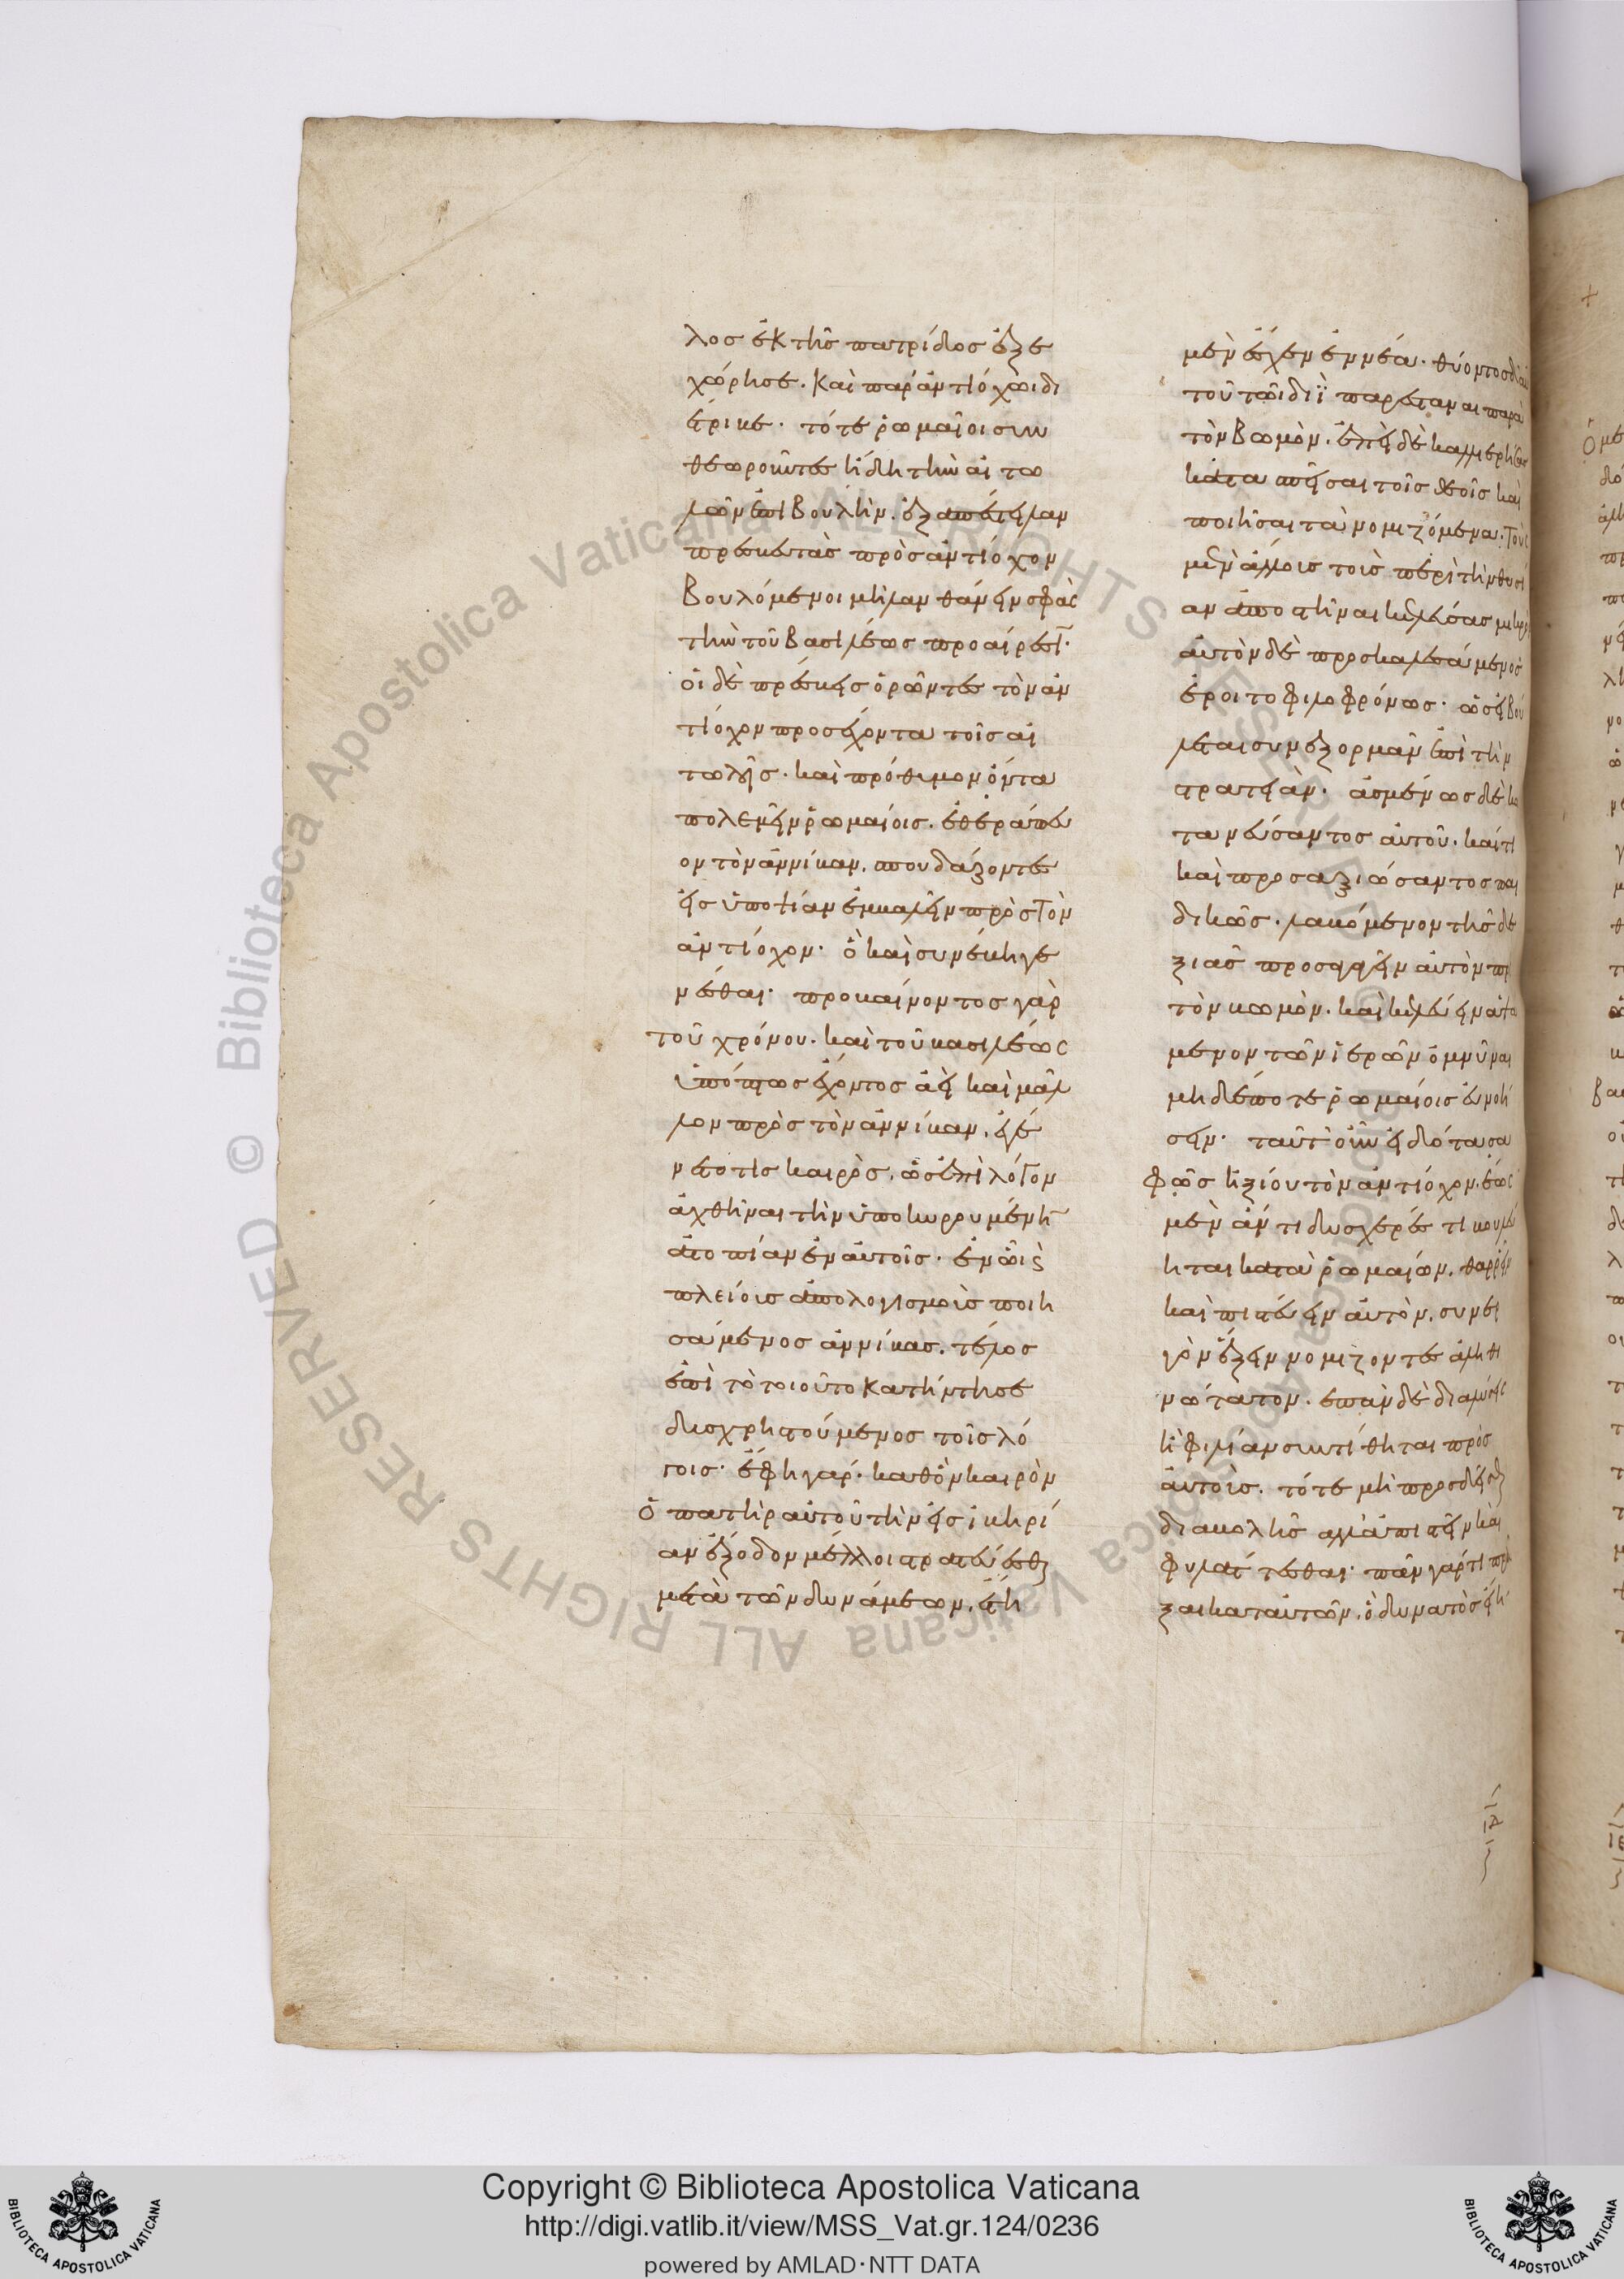 λος ἐκ τῆς πατρίδος ἐξε
χώρησε. καὶ παρ' ἀντιόχωι δι
έτριβε. τότε ῥωμαῖοι συν
θεωροῦντες ἤδη τὴν αἰτω
λῶν ἐπιβουλὴν. ἐξαπέστειλαν
πρεσβευτὰς πρὸς ἀντίοχον
βουλόμενοι μὴ λανθάνειν σφᾶς
τὴν τοῦ βασιλέως προαίρεσιν.
οἱ δὲ πρέσβεις ὁρῶντες τὸν ἀν
τίοχον προσέχοντα τοῖς αἰ
τωλοῖς. καὶ πρόθυμον ὄντα
πολεμεῖν ῥωμαίοις. ἐθεράπευ
ον τὸν ἀννίβαν. σπουδάζοντες
εἰς ὑποψίαν ἐμβαλεῖν πρὸς τὸν
ἀντίοχον. ὃ καὶ συνέβη γε
νέσθαι. προβαίνοντος γὰρ
τοῦ χρόνου. καὶ τοῦ βασιλέως
ὑπόπτως ἔχοντος ἀεὶ καὶ μᾶλ
λον πρὸς τὸν ἀννίβαν. ἐγέ
νετό τις καιρὸς. ὡς ἐπὶ λόγον
ἀχθῆναι τὴν ὑποικουρουμένην
ἀτοπίαν ἐν αὐτοῖς. ἐν ὧι καὶ
πλείους ἀπολογισμοὺς ποιη
σάμενος ἀννίβας. τέλος
ἐπὶ τὸ τοιοῦτο κατήντησε
δυσχρηστούμενος τοῖς λό
γοις. ἔφη γάρ. καθ' ὃν καιρὸν
ὁ πατὴρ αὐτοῦ τὴν εἰς ἰβηρί
αν ἔξοδον μέλλοι στρατεύεσθαι
μετὰ τῶν δυνάμεων. ἔτη
μὲν ἔχειν ἐννέα. θύοντος δὲ αὐ
τοῦ τῶι διῒ παρεστάναι παρὰ
τὸν βωμόν. ἐπεὶ δὲ καλλιερήσας
κατασπείσαι τοῖς θεοῖς καὶ
ποιῆσαι τὰ νομιζόμενα. τοὺς
μὲν ἄλλους τοὺς περὶ τὴν θυσί
αν ἀποστῆναι κελεῦσαι μικρὸν
αὐτὸν δὲ προσκαλεσάμενος
ἔροιτο φιλοφρόνως. ὡς εἰ βού
λεται συνεξορμᾶν ἐπὶ τὴν
στρατείαν. ἀσμένως δὲ κα
τανεύσαντος αὐτοῦ. καί τι
καὶ προσαξιώσαντος παι
δικῶς. λαβόμενον τῆς δε
ξιᾶς προσαγαγεῖν αὐτὸν πρὸς
τὸν βωμὸν. καὶ κελεύειν ἁψά
μενον τῶν ἱερῶν ὀμνῦναι
μηδέποτε ῥωμαίοις εὐνοή
σειν. ταῦτ' οὖν εἰδότα σα
φῶς ἠξίου τὸν ἀντίοχον. ἕως
μὲν ἄν τι δυσχερές τι βουλεύ
ηται κατὰ ῥωμαίων. θαρρεῖν
καὶ πιστεύειν αὐτὸν. συνερ
γὸν ἕξειν νομίζοντες ἀληθι
νώτατον. ἐπὰν δὲ διαλύσεις
ἢ φιλίαν συντίθηται πρὸς
αὐτοὺς. τότε μὴ προσδεῖσθαι
διαβολῆς ἀλλ' ἀπιστεῖν καὶ
φυλάττεσθαι. πᾶν γάρ τι πρᾶ
ξαι κατ' αὐτῶν. ὃ δυνατὸς εἴη